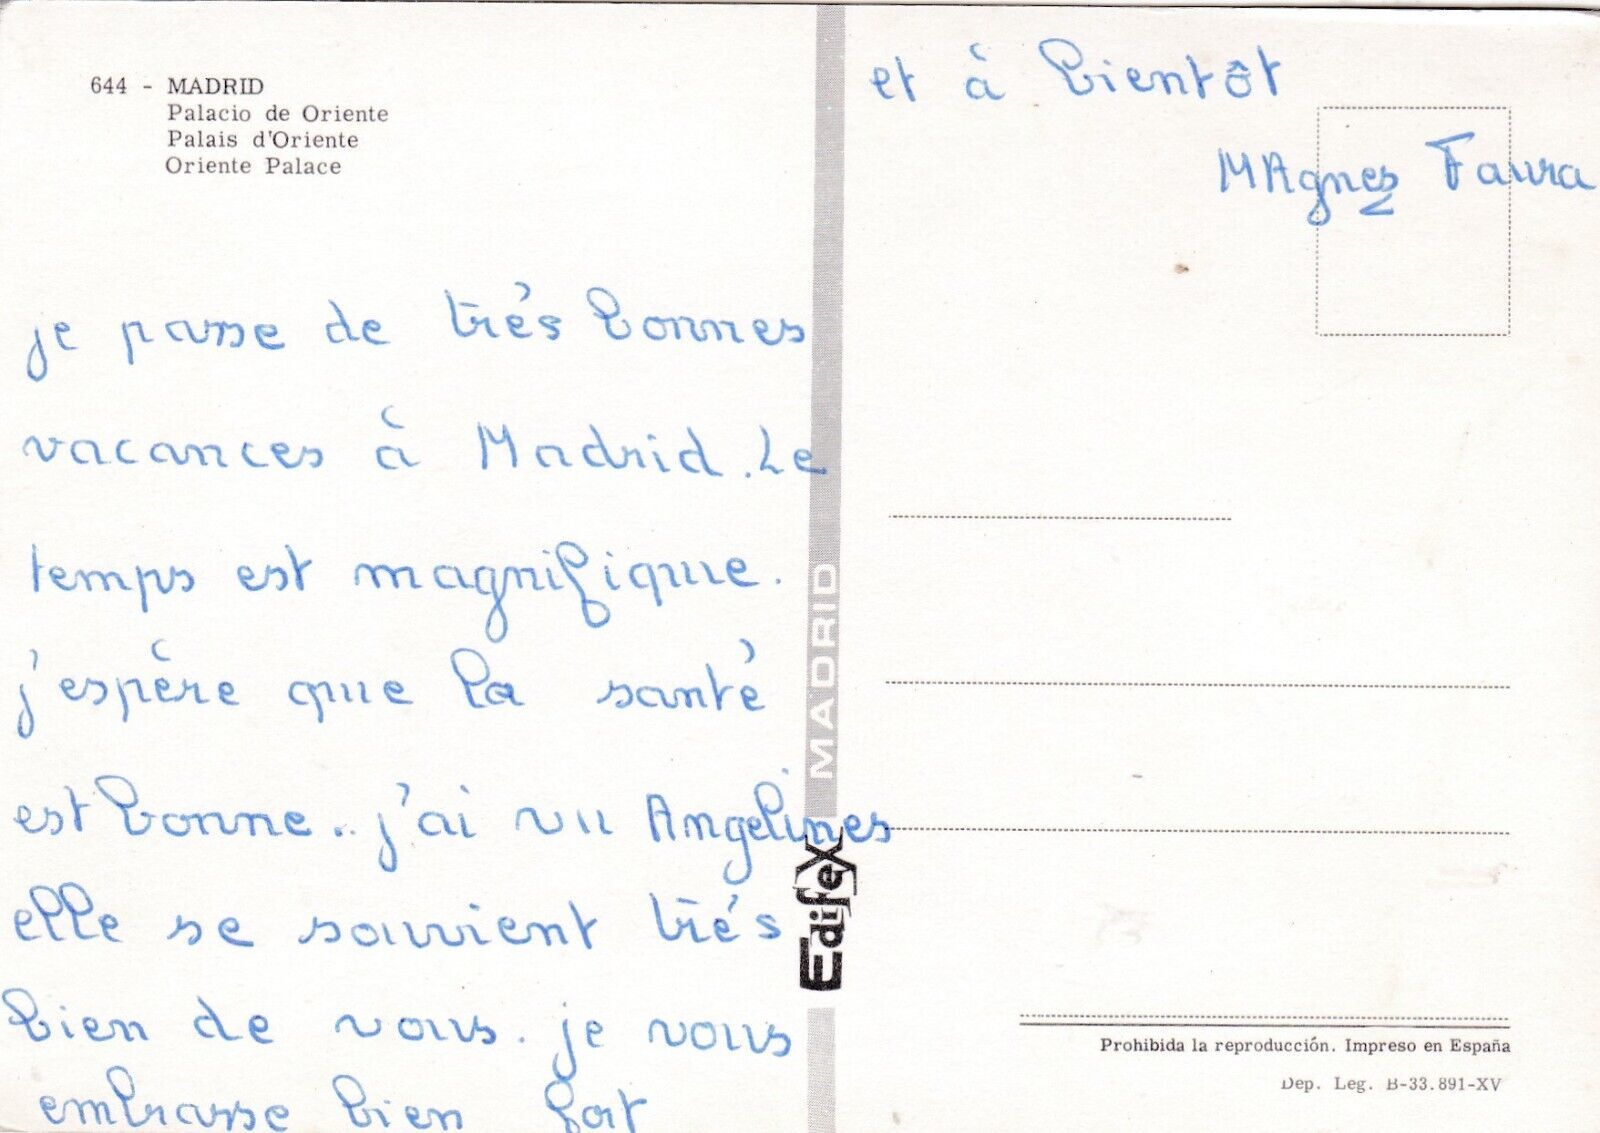 644 - MADRID
Palacio de Oriente
Palais d'Oriente
Oriente Palace
je passe de trés bonnes
vacances à Madrid. Le
temps est magnifique.
j'espère que la santé
est bonne.. j'ai vu Angelines
elle se souvient trés
bien de vous. je vous
embrasse bien fort
et à bientôt
MAgnes Faura
MADRID
Edifex
Prohibida la reproducción. Impreso en España
Dep. Leg. B-33.891-XV